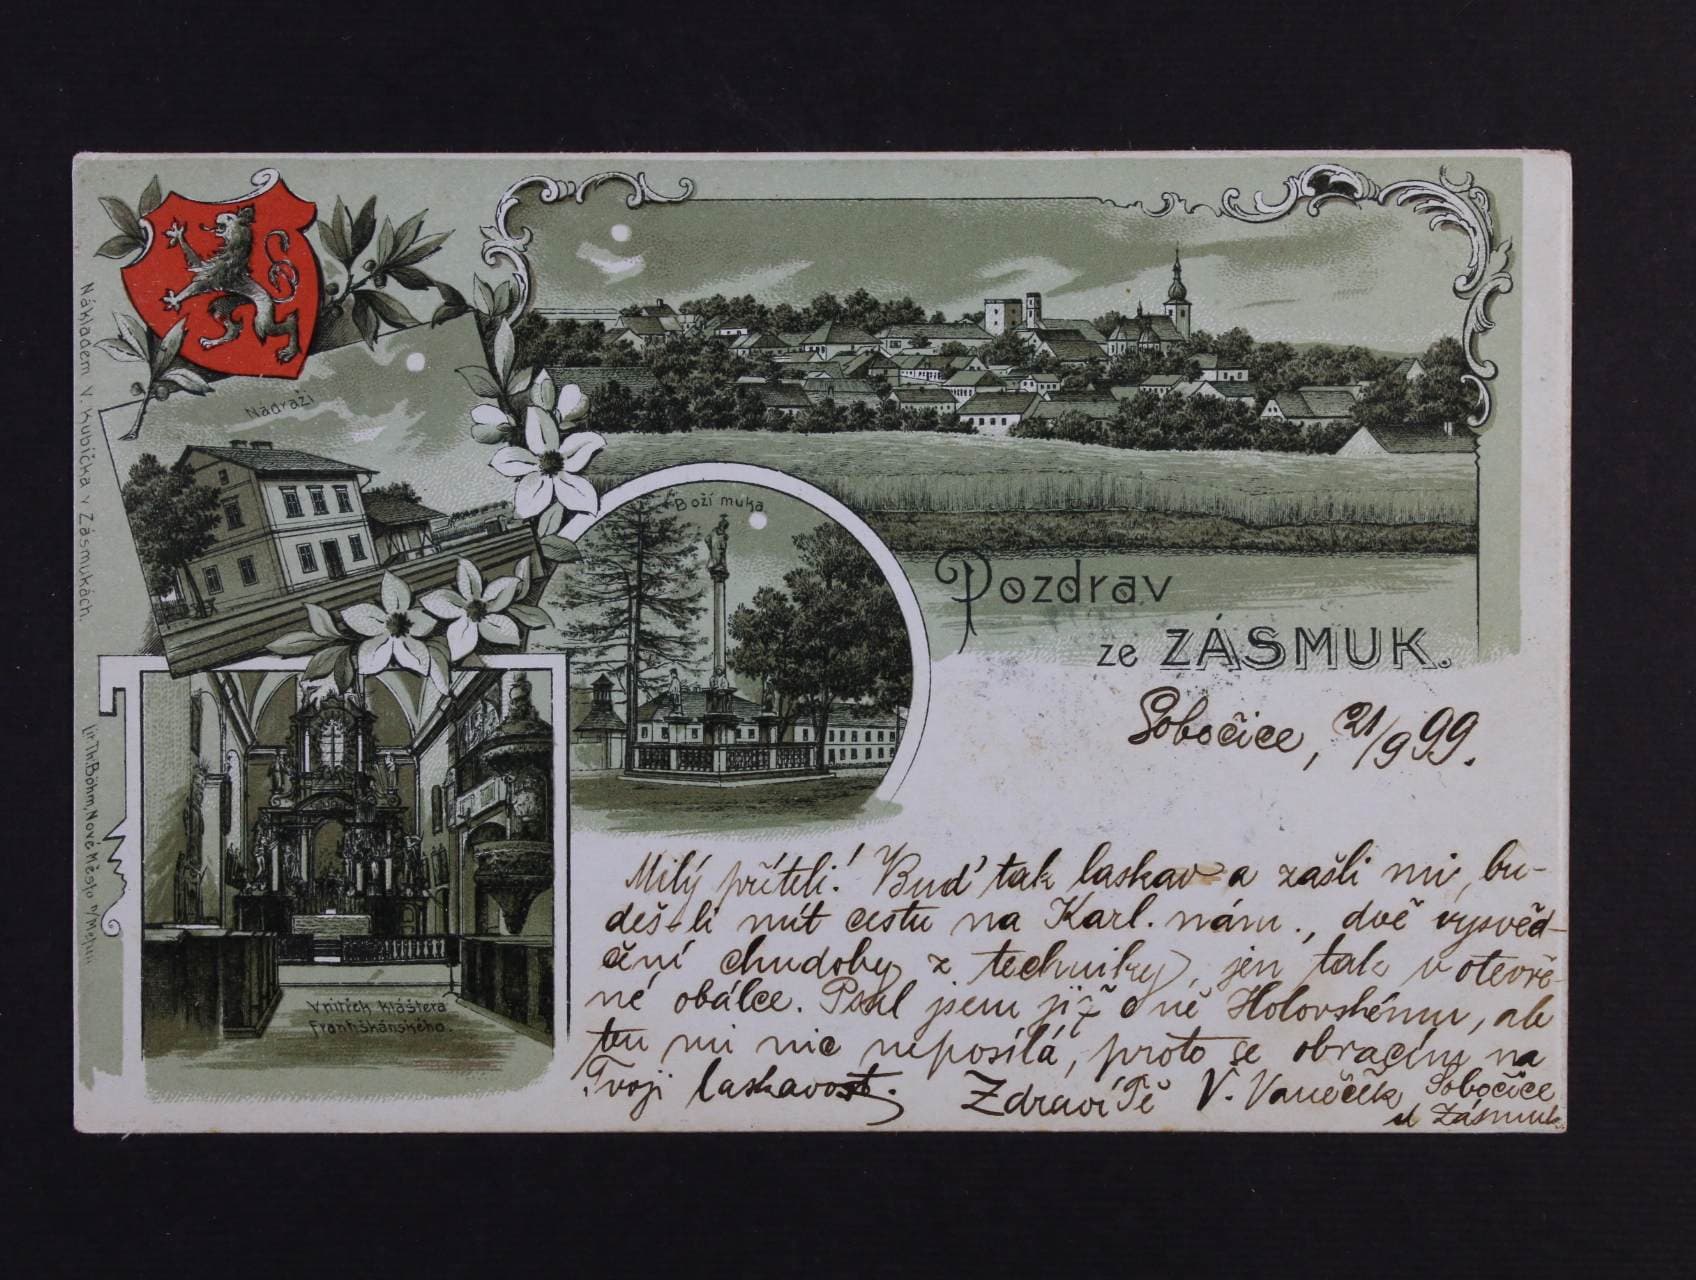 Nákladem V. Kubíčka v Zásmukách.
Nádraží
Boží muka
Pozdrav
ze ZÁSMUK.
Sobočice, 21/9 99.
Milý příteli! Buď tak laskav a zašli mi, bu-
deš-li mít cestu na Karl. nám., dvě vysvěd-
čení chudoby z techniky, jen tak v otevře-
né obálce. Psal jsem již o ně Holovskému, ale
ten mi nic neposílá, proto se obracím na
Tvoji laskavost. Zdraví Tě V. Vaněček Sobočice
u Zásmuk
Vnitřek kláštera
Františkánského.
Lit. Th. Böhm, Nové Město n/Met.